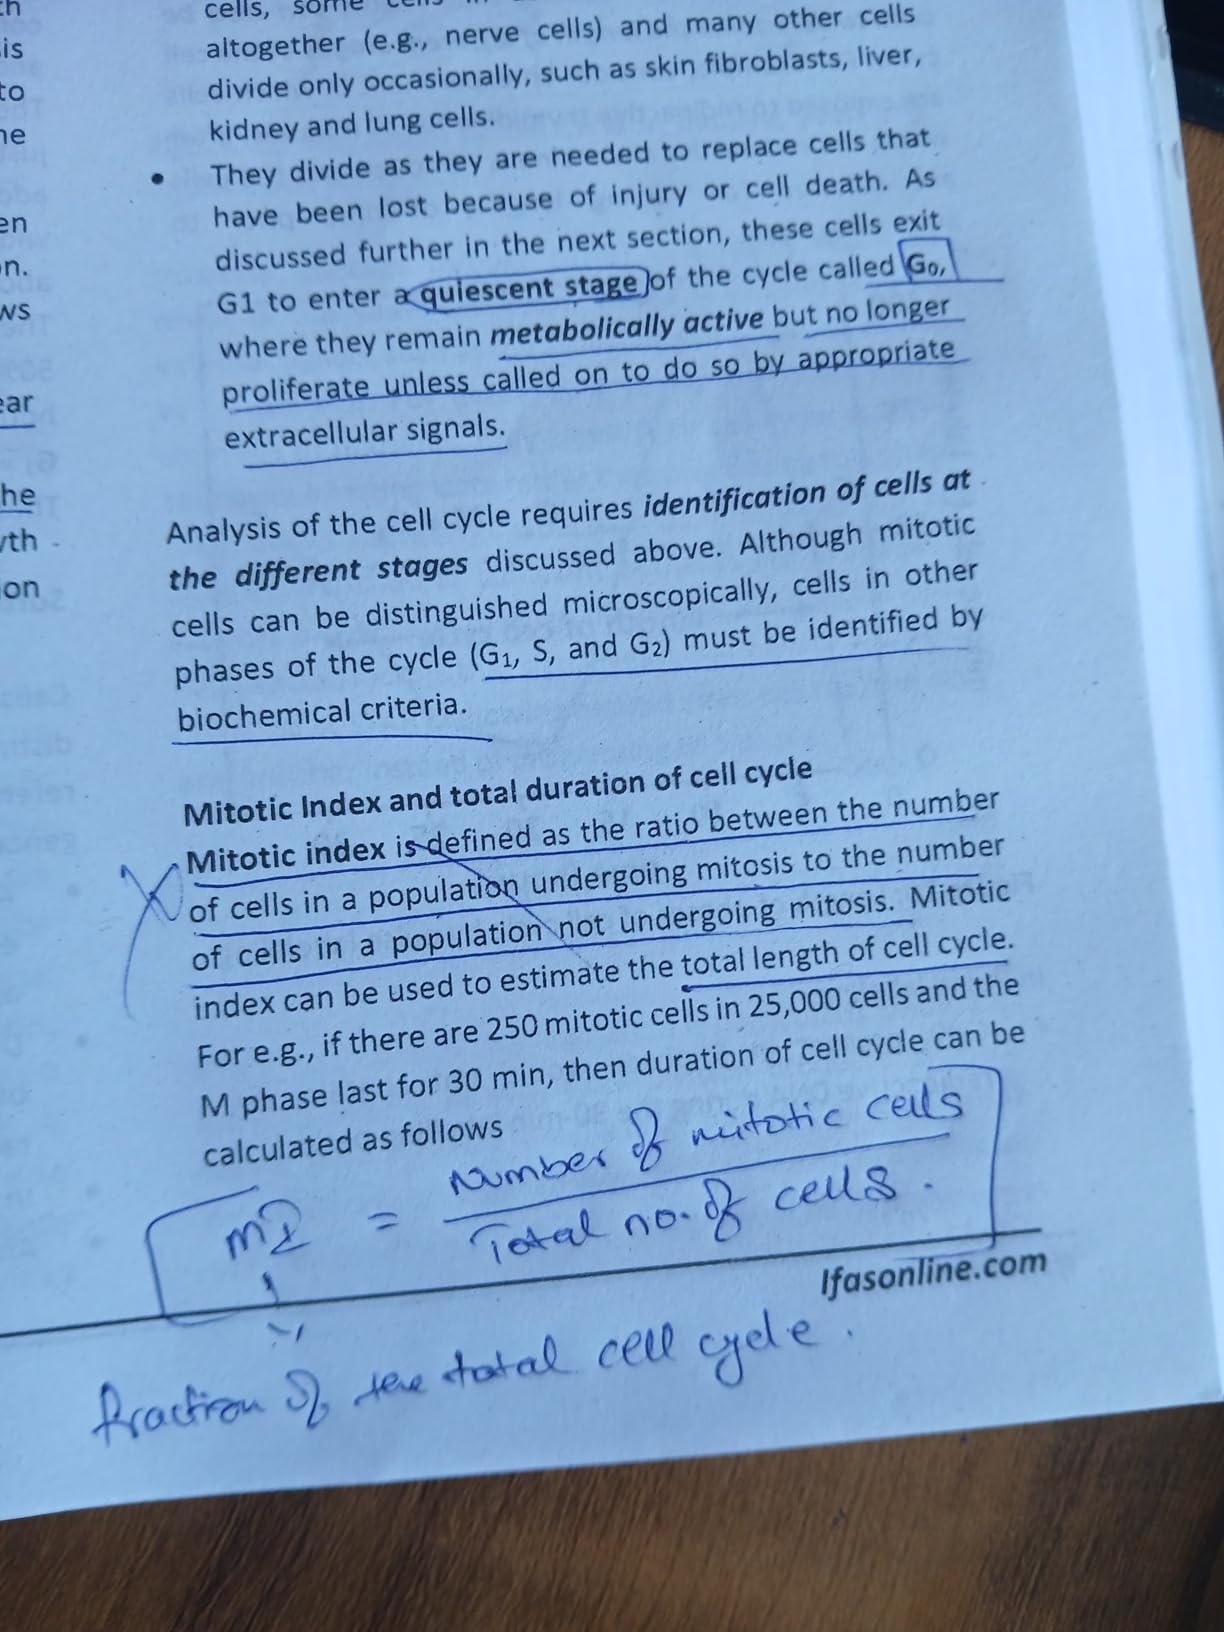 is
to
en
on.
ws
ear
he
on
cells, some cells in
altogether (e.g., nerve cells) and many other cells
divide only occasionally, such as skin fibroblasts, liver,
kidney and lung cells.
• They divide as they are needed to replace cells that
have been lost because of injury or cell death. As
discussed further in the next section, these cells exit
G1 to enter a quiescent stage of the cycle called G₀,
where they remain metabolically active but no longer
proliferate unless called on to do so by appropriate
extracellular signals.
Analysis of the cell cycle requires identification of cells at
the different stages discussed above. Although mitotic
cells can be distinguished microscopically, cells in other
phases of the cycle (G₁, S, and G₂) must be identified by
biochemical criteria.
Mitotic Index and total duration of cell cycle
Mitotic index is defined as the ratio between the number
of cells in a population undergoing mitosis to the number
of cells in a population not undergoing mitosis. Mitotic
index can be used to estimate the total length of cell cycle.
For e.g., if there are 250 mitotic cells in 25,000 cells and the
M phase last for 30 min, then duration of cell cycle can be
calculated as follows
Number of mitotic cells
MI =
Total no. of cells.
Ifasonline.com
fraction of the total cell cycle.